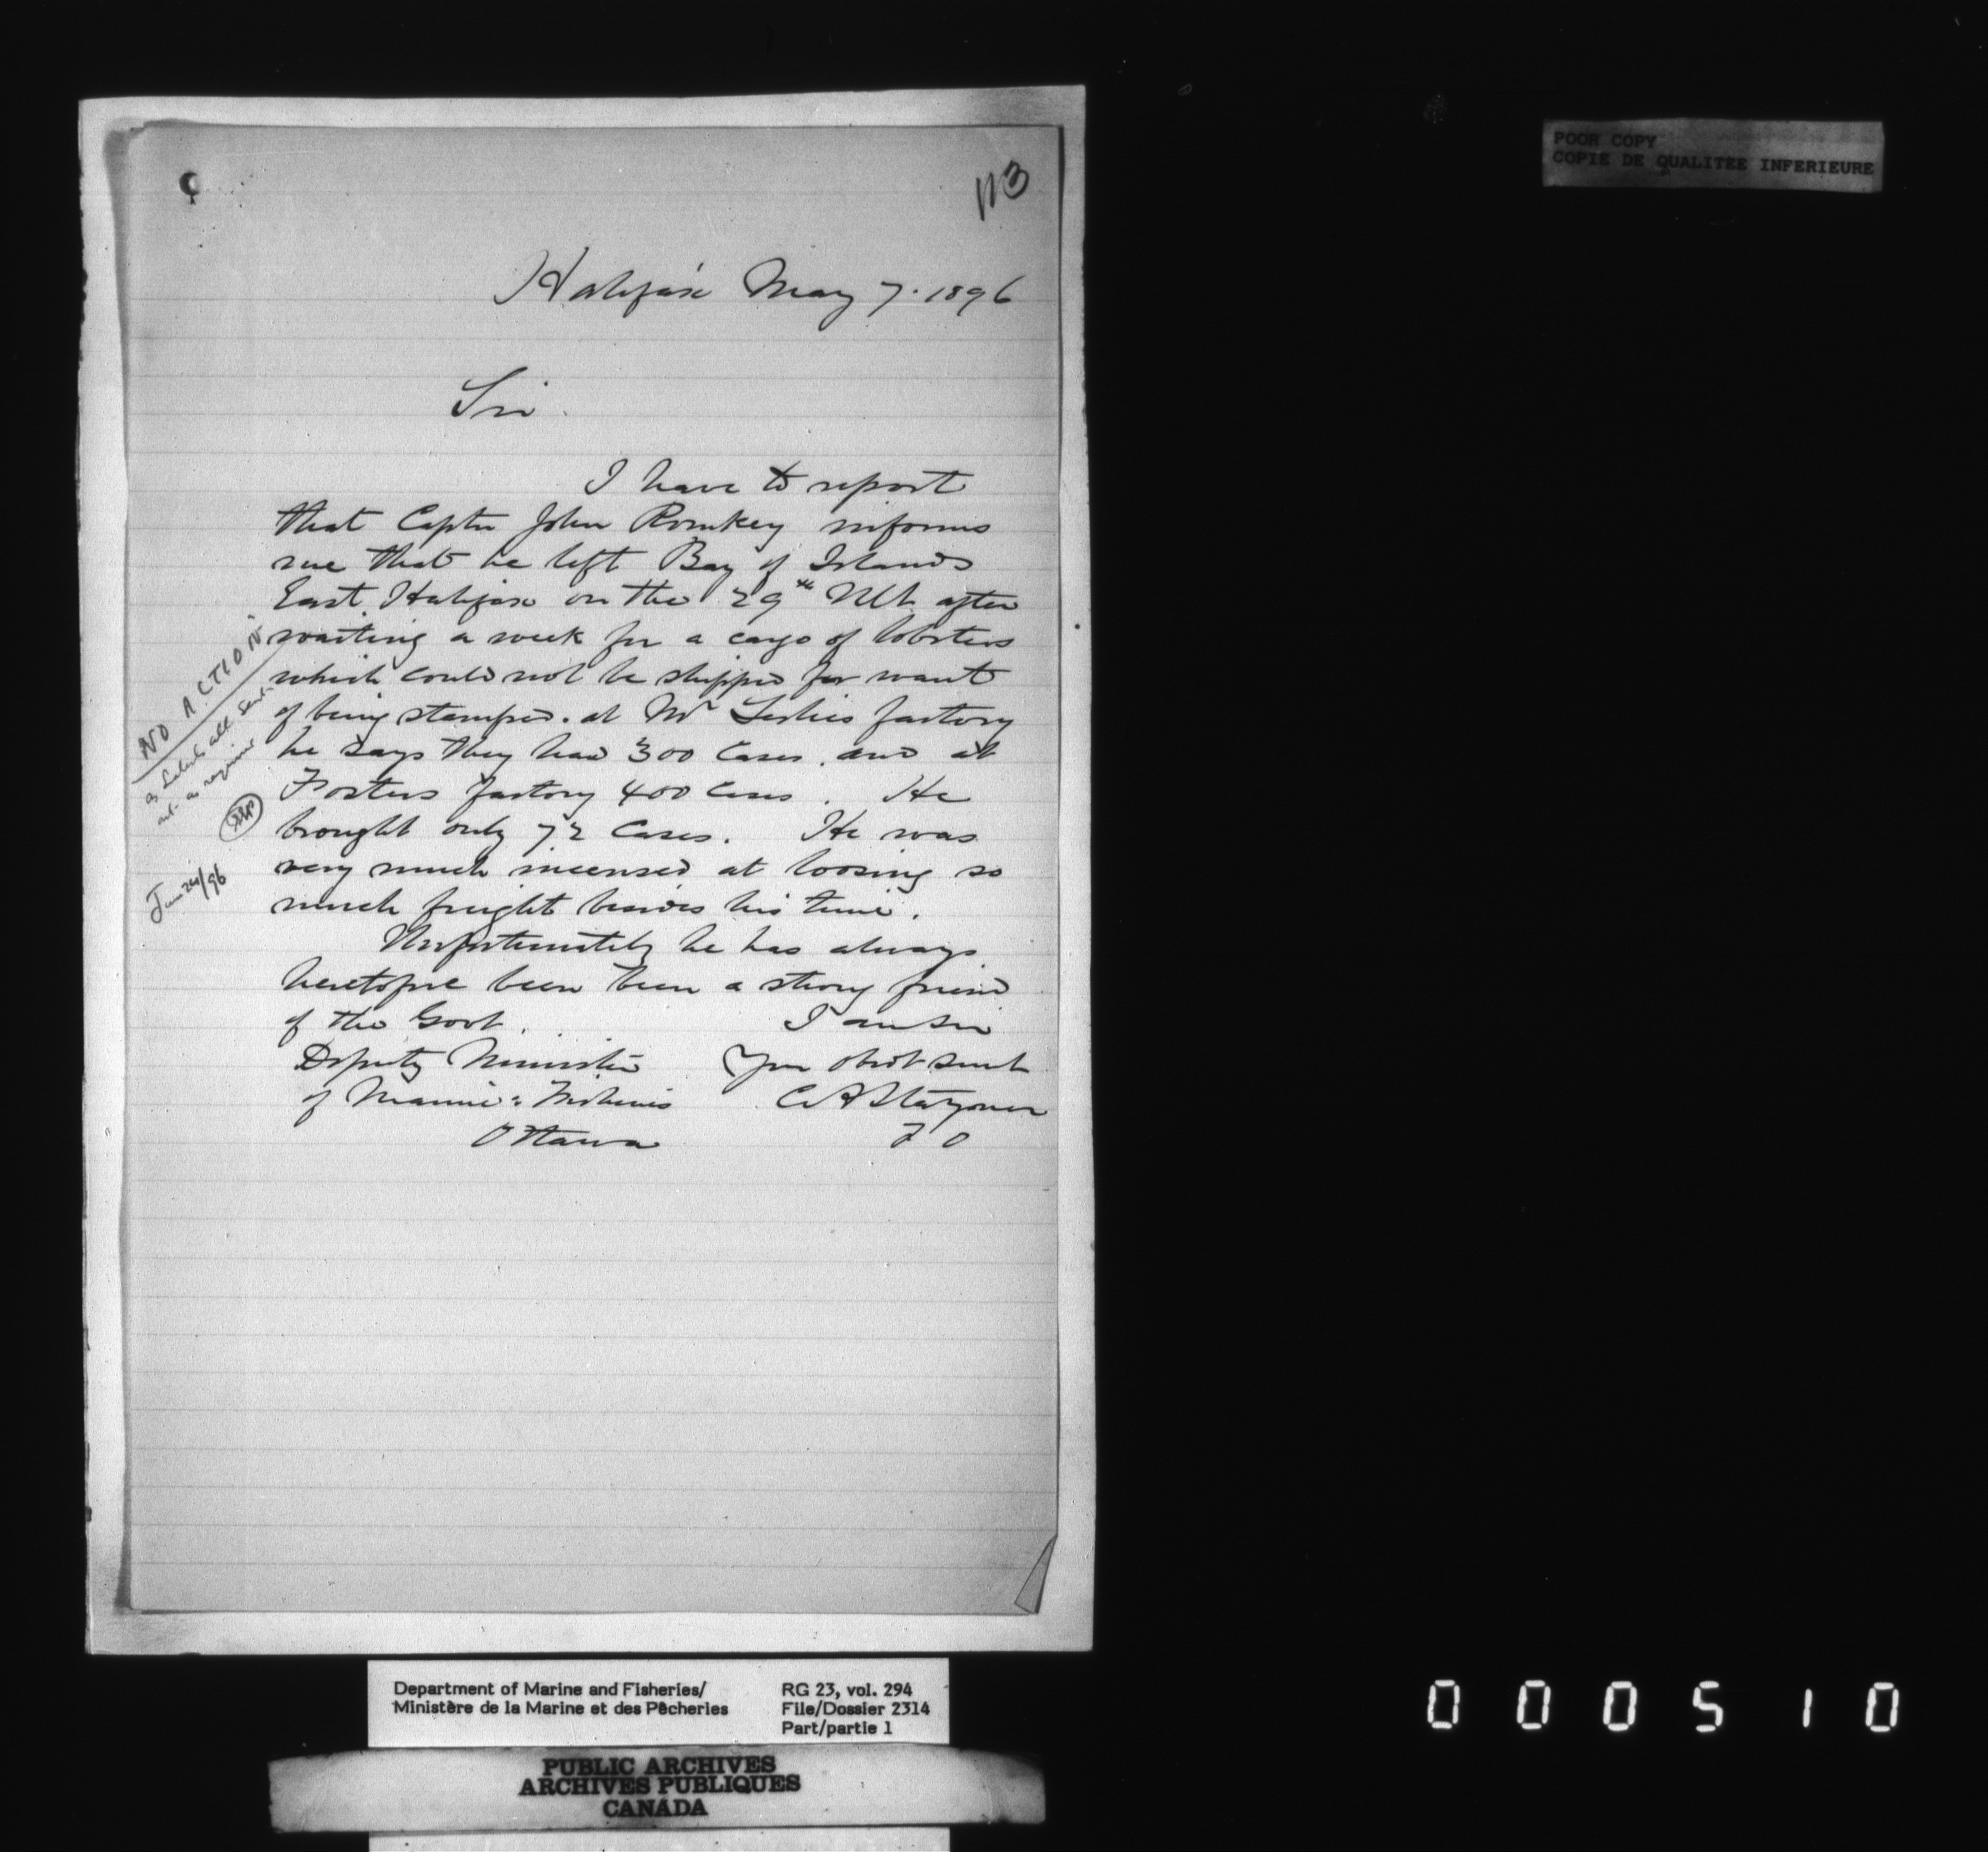 113
Halifax May 7. 1896
Sir.
I have to report
that Captn John Romkey informs
me that he left Bay of Islands
East. Halifax on the 29th Ult. after
waiting a week for a cargo of lobsters
which could not be shipped for want
of being stamped. at Mr Leslies factory
he says they had 300 Cases. and at
Fosters factory 400 Cases. He
brought only 72 Cases. He was
very much incensed at loosing so
much freight besides his time.
Unfortunately he has always
heretofore been been a strong friend
of the Govt. I am Sir
Deputy Minister Your obdt Servt
of Marine & Fisheries C A Stayner
Ottawa F O
NO ACTION
as Labels all sent
out as required
June 24/96
POOR COPY
COPIE DE QUALITEE INFERIEURE
Department of Marine and Fisheries/ RG 23, vol. 294
Ministère de la Marine et des Pêcheries File/Dossier 2314
Part/partie 1
PUBLIC ARCHIVES
ARCHIVES PUBLIQUES
CANADA
000510